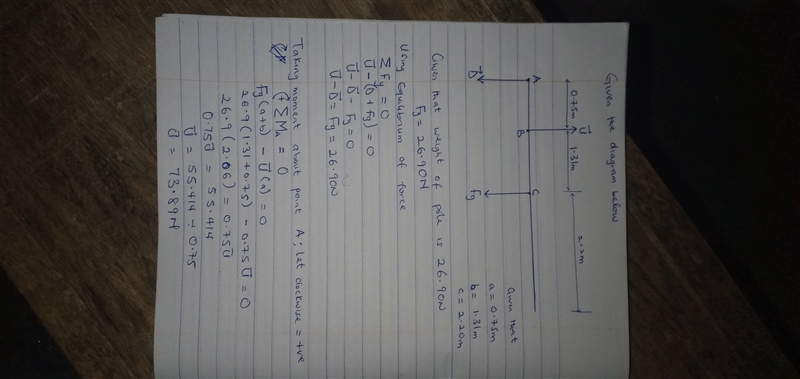 Given the diagram below
0.75m U⃗ 1.31m 2.2m
A B C
D⃗ Fg
Given that
a = 0.75m
b = 1.31m
c = 2.20m
Given that weight of pole is 26.90N
Fg = 26.90N
Using Equilibrium of force
ΣFy = 0
U⃗ - (D⃗ + Fg) = 0
U⃗ - D⃗ - Fg = 0
U⃗ - D⃗ = Fg = 26.90N
Taking moment about point A; Let clockwise = +ve
(+ ΣMA = 0
Fg (a+b) - U⃗ (a) = 0
26.9 (1.31 + 0.75) - 0.75 U⃗ = 0
26.9 (2.06) = 0.75U⃗
0.75U⃗ = 55.414
U⃗ = 55.414 ÷ 0.75
U⃗ = 73.89N